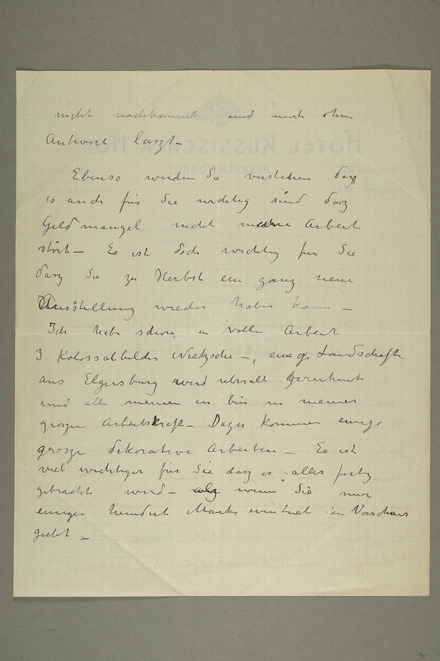 nicht nachkommt und mich ohne
Antwort laszt –
Ebenso werden Sie verstehen dasz
es auch für Sie wichtig sind dasz
Geldmangel nicht meine Arbeit
stört – Es ist doch wichtig für Sie
dasz Sie zu Herbst ein ganz neue
Ausstellung wieder haben kann –
Ich habe schon in voller Arbeit
3 Kolossalbilder Nietzsche –, einige Landschafte
aus Elgersburg wird uberall
und alle meinen ich bin in meiner
groszen Arbeitskraft – Dazu kommen einige
grosze dekorative Arbeiten – Es ist
viel wichtiger für Sie dasz es alles fertig
gebracht wird – als wenn Sie mir
einige hundert Marks eventuel in Vorschuss
giebt –
HOTEL RUSSISCHER HOF